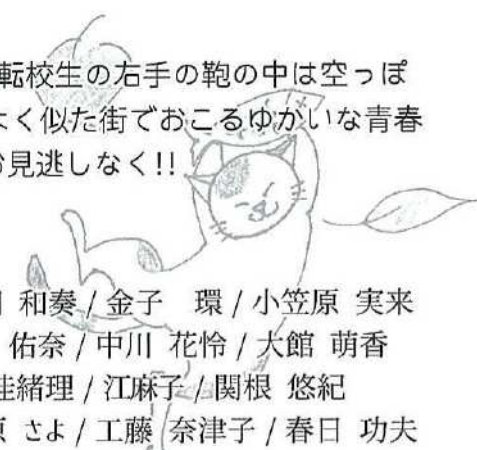 転校生の右手の鞄の中は空っぽ
よく似た街でおこるゆかいな青春
お見逃しなく!!
和奏 / 金子 環 / 小笠原 実来
佑奈 / 中川 花怜 / 大館 萌香
佳緒理 / 江麻子 / 関根 悠紀
原 さよ / 工藤 奈津子 / 春日 功夫